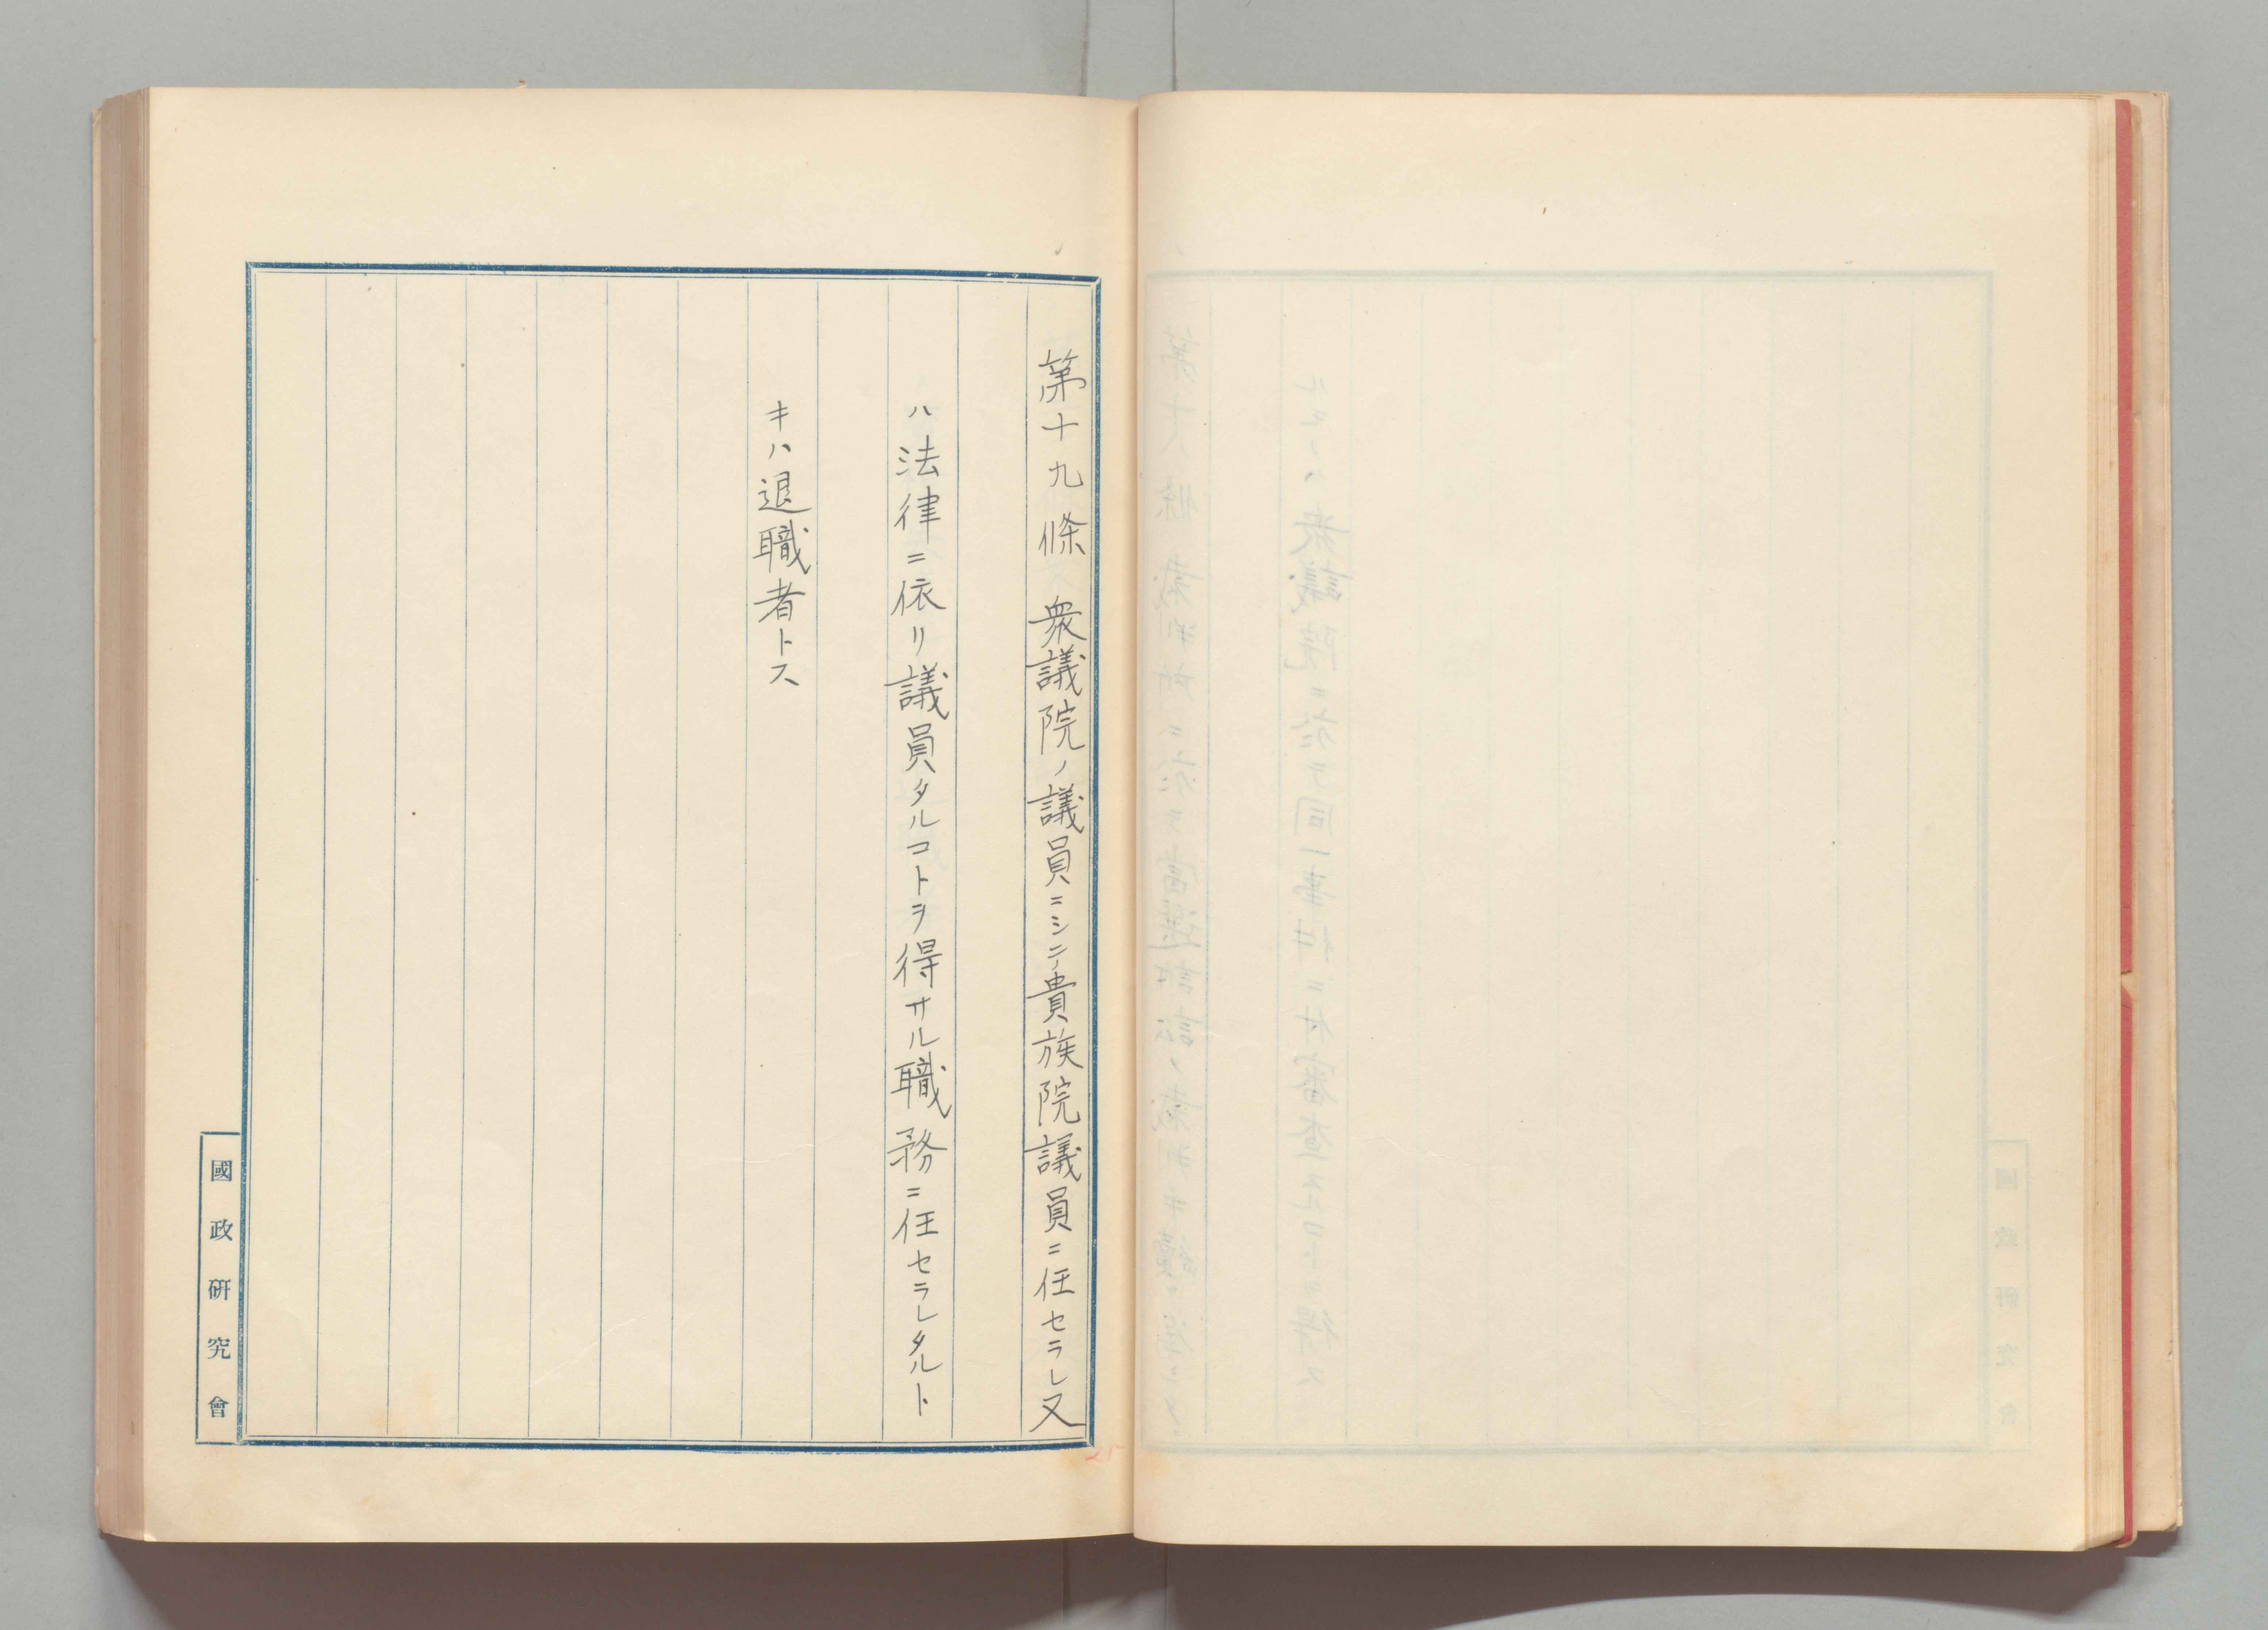 第十九條 衆議院ノ議員ニシテ貴族院議員ニ任セラレ又
ハ法律ニ依リ議員タルコトヲ得サル職務ニ任セラレタルト
キハ退職者トス
國政研究會